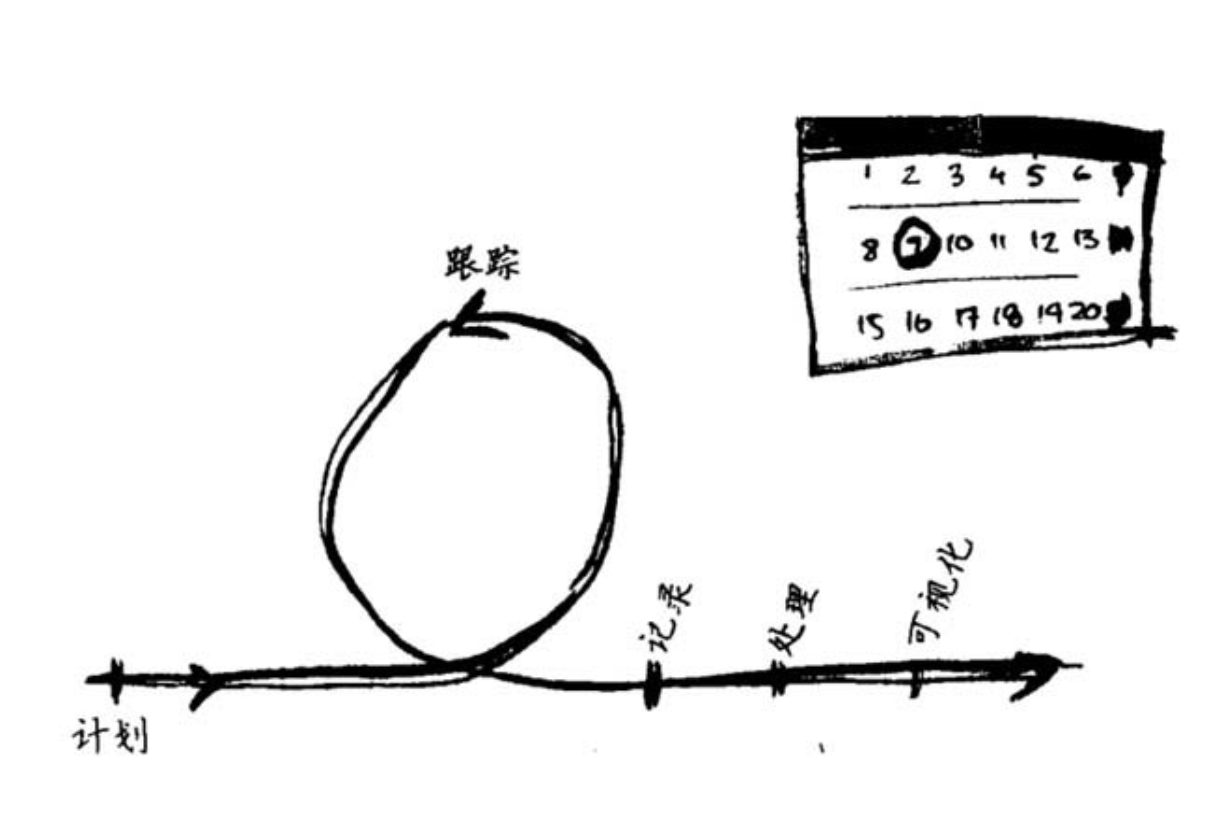 1 2 3 4 5 6
8 9 10 11 12 13
15 16 17 18 19 20
跟踪
记录
处理
可视化
计划